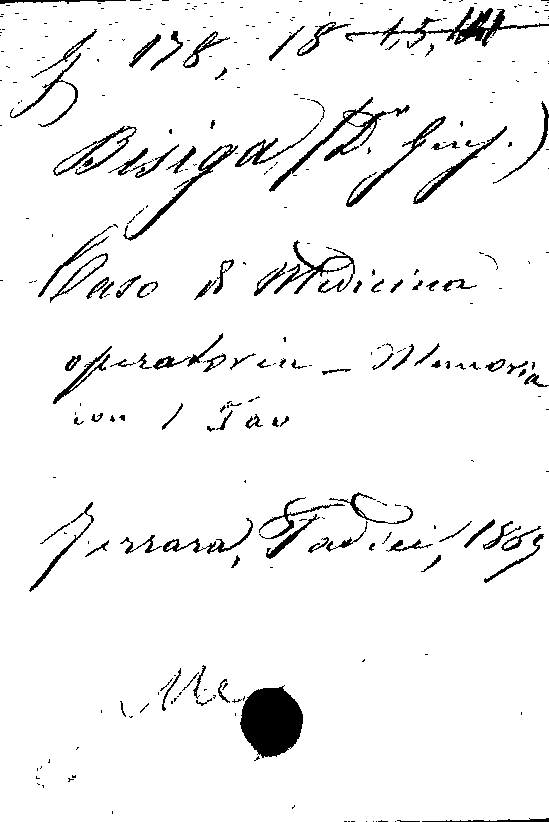 G. 178, 18
Bisiga (Dr. Giuś.)
Caso di Medicina
operatoria – Memoria
con 1 Tav
Ferrara, Taddei, 1869
Me